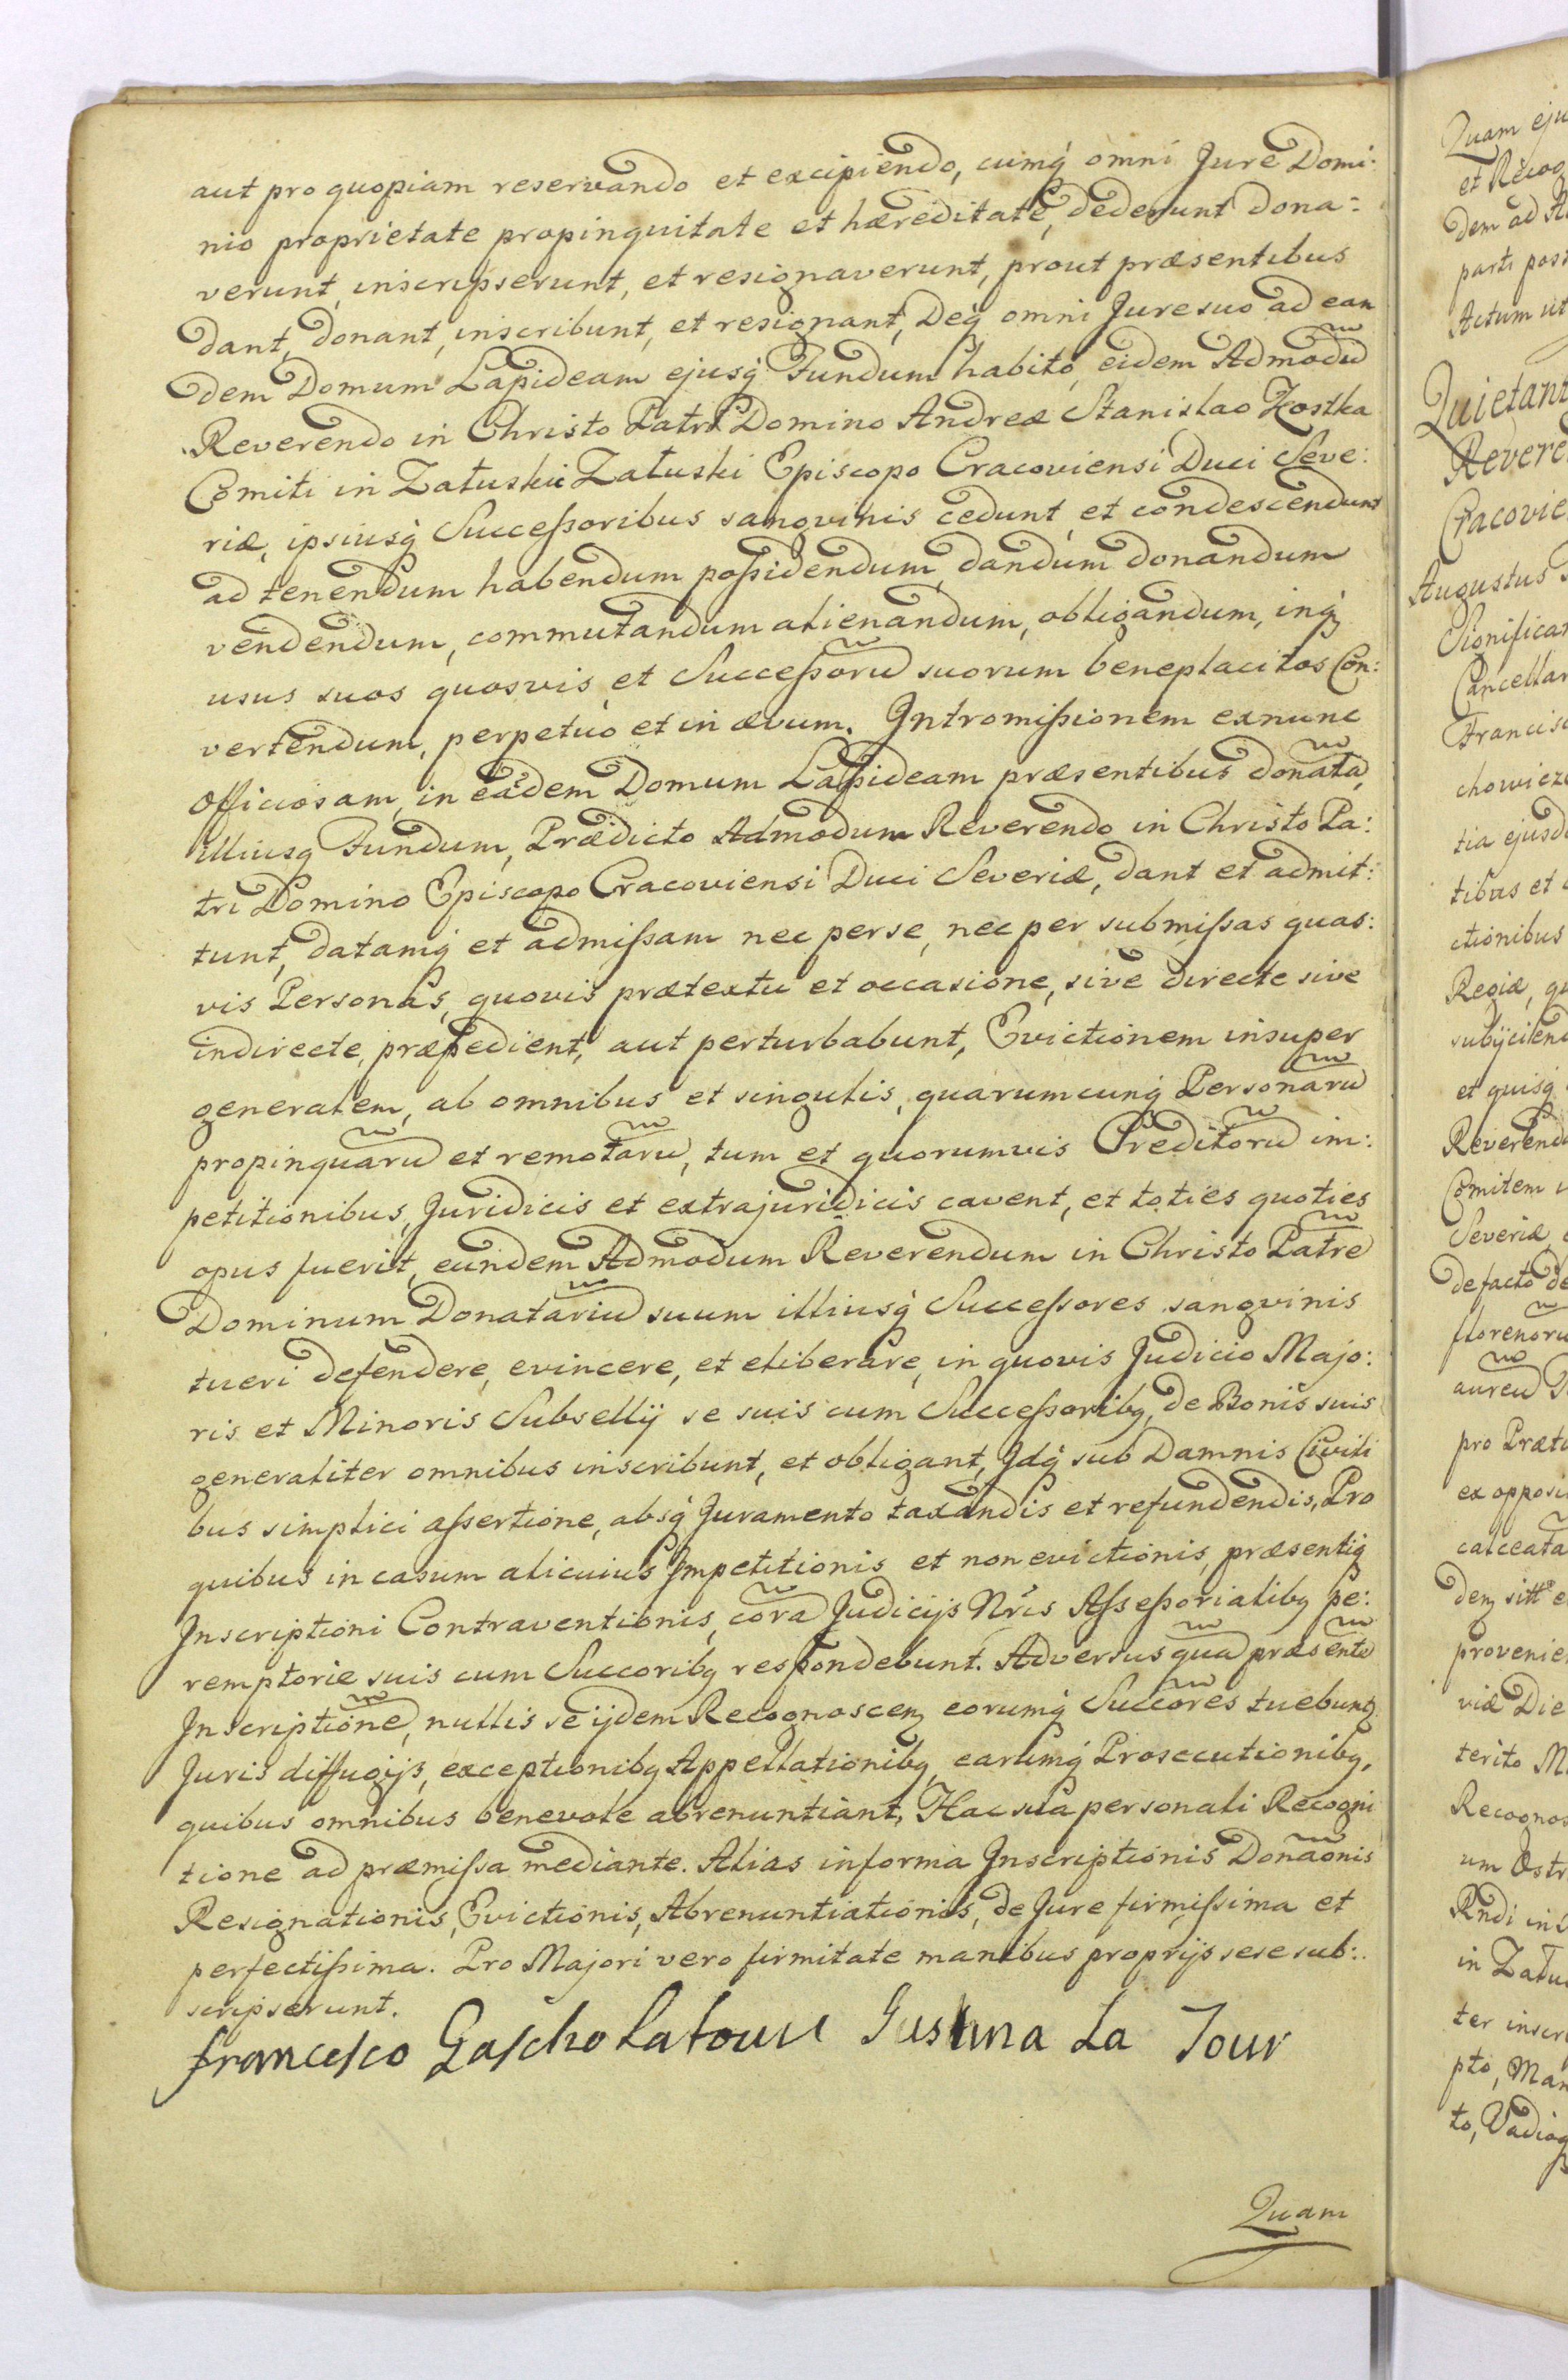 aut pro quopiam reservando et excipiendo, cumq́ omni Jure Domi:
nio proprietate propinquitate et hæreditate, dederunt dona:
verunt, inscripserunt, et resignaverunt, prout præsentibus
dant, donant, inscribunt, et resignant, Deq́ omni Jure suo ad ean
dem Domum Lapideam ejusq́ Fundum habito, eidem Admodũ
Reverendo in Christo Patri Domino Andreæ Stanislao Kostka
Comiti in Załuskie Załuski Episcopo Cracoviensi Duci Seve:
riæ, ipsiusq́ Succeſsoribus sangvinis cedunt et condescendunt
ad tenendum habendum poſsidendum, dandum donandum
vendendum, commutandum alienandum, obligandum, inq́
usus suos quosvis et Succeſsorũ suorum beneplacitos Con:
vertendum, perpetuo et in ævum. Intromiſsionem exnunc
officiosam, in eãdem Domum Lapideam præsentibus donatã,
illiusq́ Fundum, Prædicto Admodum Reverendo in Christo Pa:
tri Domino Episcopo Cracoviensi Duci Severiæ, dant et admit:
tunt, datamq́ et admiſsam nec per se, nec per submiſsas quas:
vis Personas, quovis prætextu et occasione, sive directe sive
indirecte, præpedient, aut perturbabunt, Evictionem insuper
generalem, ab omnibus et singulis, quarumcunq́ Personarũ
propinquarũ et remotarũ, tum et quorumvis Creditorũ im:
petitionibus, Juridicis et extrajuridicis cavent, et toties quoties
opus fuerit, eundem Admodum Reverendum in Christo Patrẽ
Dominum Donatariũ suum illiusq́ Succeſsores sangvinis
tueri defendere, evincere, et eliberare, in quovis Judicio Majo:
ris et Minoris Subsellij se suis cum Succeſsoribꝗ, de Bonis suis
generaliter omnibus inscribunt, et obligant, Idq́ sub Damnis Civili
bus simplici aſsertione, absq́ Juramento taxandis et refundendis, Pro
quibus in casum alicuius Impetitionis et non evictionis, præsentiq́
Inscriptioni Contraventionis, corã Judicijs Nr̃is Aſseſsorialibꝗ pe:
remptorie suis cum Succoribꝗ respondebunt. Adversus quã præsentẽ
Inscriptionẽ, nullis se ijdem Recognoscenꝫ eorumq́ Succõres tuebuntꝫ
Juris diffugijs, exceptionibꝗ Appellationibꝗ, earumq́ Prosecutionibꝗ,
quibus omnibus benevole abrenuntiant, Hac sua personali Recogni
tione ad præmiſsa mediante. Alias in forma Inscriptionis Donãonis
Resignationis, Evictionis, Abrenuntiationis, de Jure firmiſsima et
perfectiſsima. Pro Majori vero firmitate manibus proprijs sese sub:
scripserunt.
francesco Gascho Latour Justina La Tour
Quam
Quam eju
et Recog
dem ad A
parti pos
Actum ut
Quietant
Revere
Cracovie
Augustus
Significa
Cancellar
Francis
chowicz
tia ejusd
tibus et
ctionibus
Regiæ, q
subijcien
et quisq́
Reverend
Comitem
Severiæ
de facto de
florenorũ
aureũ
pro Præt
ex oppos
calceata
provenie
viæ Die
terito M
Recognos
um Ostr
Rndi in
in Zału
ter inscr
pto, Man
to, Vadioq́